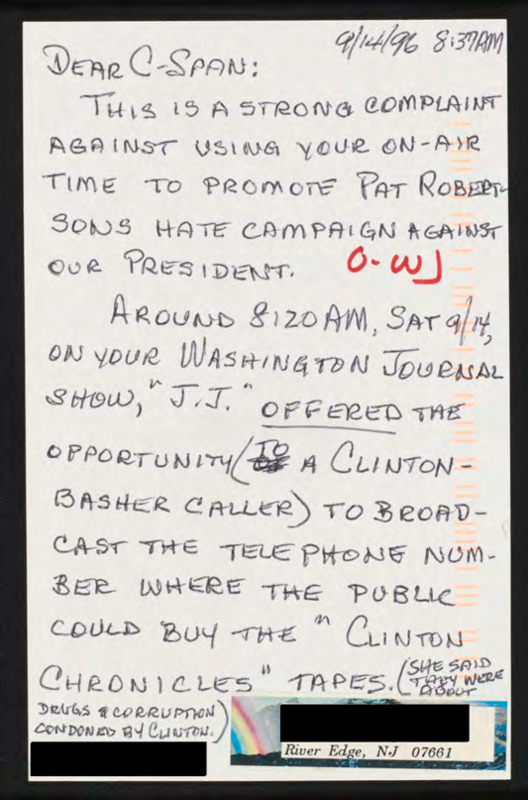 9/14/96 8:37AM
DEAR C-SPAN:
THIS IS A STRONG COMPLAINT
AGAINST USING YOUR ON-AIR
TIME TO PROMOTE PAT ROBERT-
SONS HATE CAMPAIGN AGAINST
OUR PRESIDENT. O-WJ
AROUND 8:20AM, SAT 9/14,
ON YOUR WASHINGTON JOURNAL
SHOW, "J.J." OFFERED THE
OPPORTUNITY (TO A CLINTON-
BASHER CALLER) TO BROAD-
CAST THE TELEPHONE NUM-
BER WHERE THE PUBLIC
COULD BUY THE "CLINTON
CHRONICLES" TAPES. (SHE SAID
THEY WERE
ABOUT
DRUGS & CORRUPTION)
CONDONED BY CLINTON.)
River Edge, NJ 07661